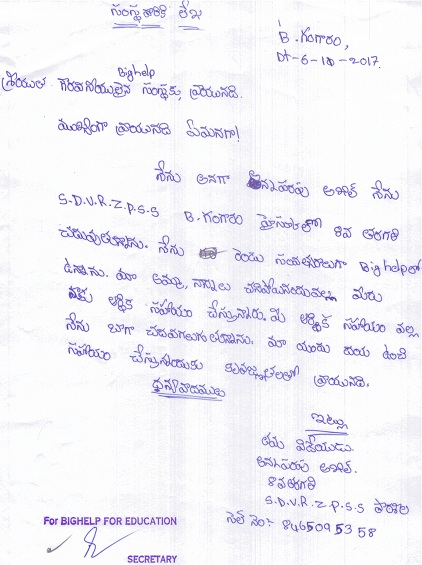 సంస్థ వారికి లేఖ
B. గంగారం,
Dt-6-10-2017.
Bighelp
శ్రీయుత గౌరవనీయులైన సంస్థకు, వ్రాయునది.
ముఖ్యంగా వ్రాయునది ఏమనగా!
నేను అనగా అన్నపరపు అఖిల్ నేను
S.D.V.R.Z.P.S.S B. గంగారం హైస్కూల్ లో 8వ తరగతి
చదువుతున్నాను. నేను రెండు సంవత్సరాలుగా Big helpలో
ఉన్నాను. మా అమ్మ, నాన్నలు చనిపోయినందువల్ల మీరు
నాకు ఆర్థిక సహాయం చేస్తున్నారు. మీ ఆర్థిక సహాయం వల్ల
నేను బాగా చదవగలుగుతున్నాను. మా యందు దయ ఉంచి
సహాయం చేస్తున్నందుకు కృతజ్ఞతలతో వ్రాయునది.
ధన్యవాదములు
ఇట్లు
తమ విధేయుడు.
అన్నపరపు అఖిల్.
8వ తరగతి
S.D.V.R.Z.P.S.S పాఠశాల
సెల్ నెం:- 8465095358
For BIGHELP FOR EDUCATION
SECRETARY